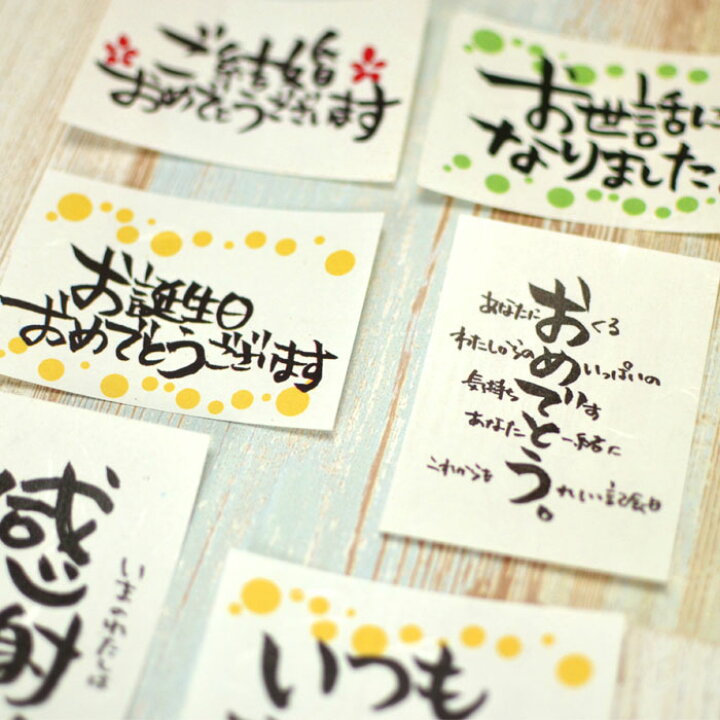 ご結婚
おめでとうございます
お世話に
なりました
お誕生日
おめでとうございます
あなたにおくる
わたしからのめいっぱいの
気持ちです
あなたと一緒に
これからもうれしい記念日。
感謝
いまのわたしは
いつも